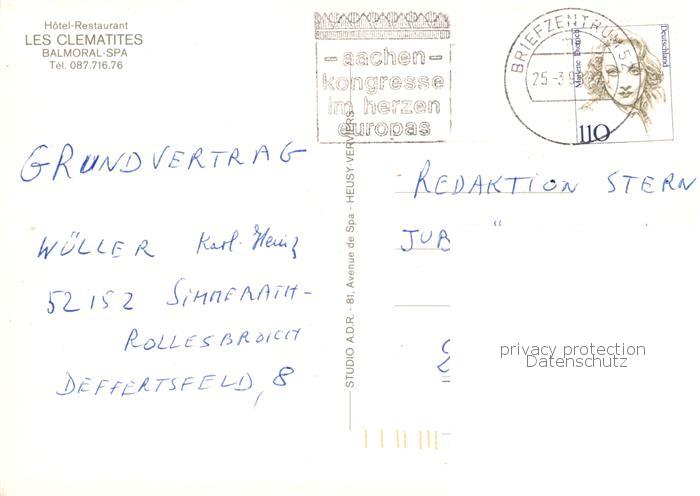 Hôtel-Restaurant
LES CLEMATITES
BALMORAL-SPA
Tél. 087.716.76
- aachen -
kongresse
im herzen
europas
BRIEFZENTRUM 52
25-3.9
Marlene Dietrich
Deutschland
110
GRUNDVERTRAG
WÜLLER Karl-Heinz
52152 SIMMERATH-
ROLLESBROICH
DEFFERTSFELD, 8
STUDIO A.D.R. - 81, Avenue de Spa - HEUSY-VERVIERS
REDAKTION STERN
JUB
privacy protection
Datenschutz